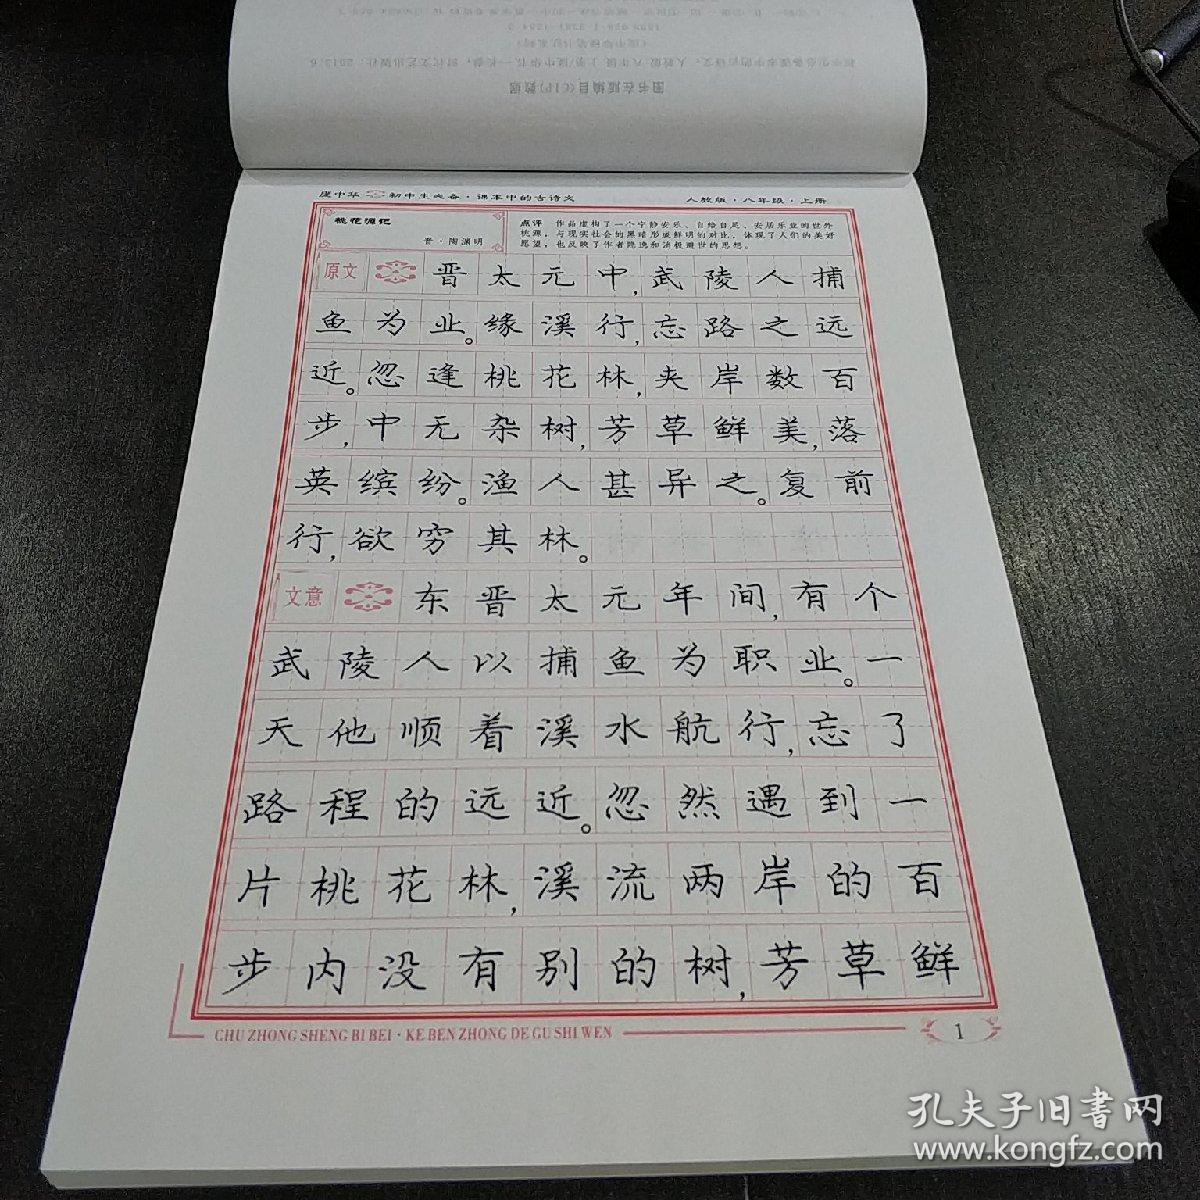 图书在版编目(CIP)数据
庞中华 初中生必备·课本中的古诗文
人教版·八年级·上册
桃花源记
晋·陶渊明
点评 作品虚构了一个宁静安乐、自给自足、安居乐业的世外
桃源，与现实社会的黑暗形成鲜明的对比，体现了人们的美好
愿望，也反映了作者隐逸和消极避世的思想。
原文 晋太元中,武陵人捕
鱼为业。缘溪行,忘路之远
近。忽逢桃花林,夹岸数百
步,中无杂树,芳草鲜美,落
英缤纷。渔人甚异之。复前
行,欲穷其林。
文意 东晋太元年间,有个
武陵人以捕鱼为职业。一
天他顺着溪水航行,忘了
路程的远近。忽然遇到一
片桃花林,溪流两岸的百
步内没有别的树,芳草鲜
CHU ZHONG SHENG BI BEI·KE BEN ZHONG DE GU SHI WEN
1
孔夫子旧书网
www.kongfz.com